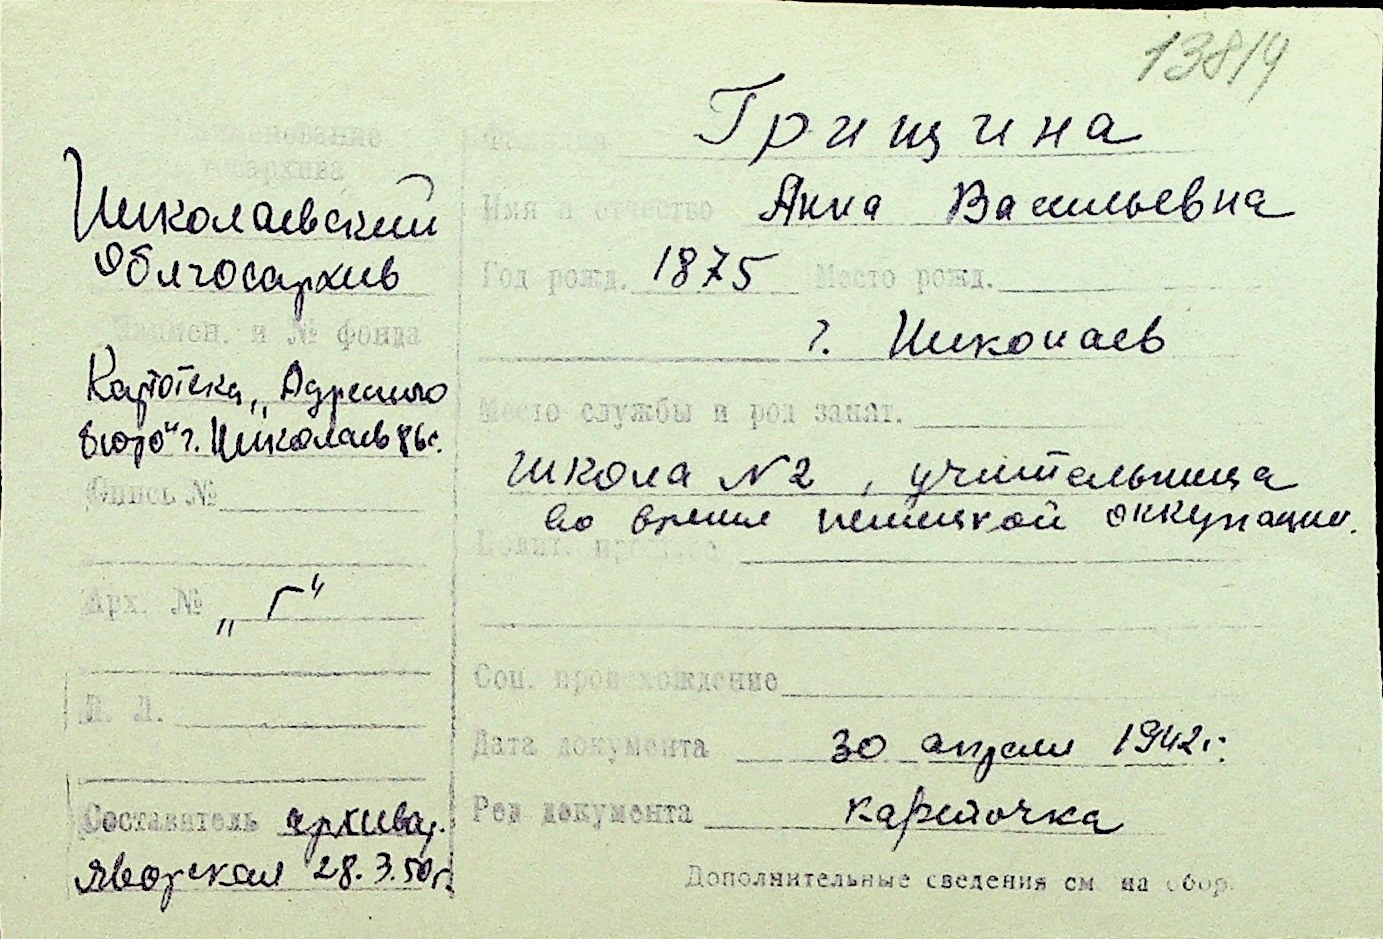 13814
Наименование
госархива
Николаевский
Облгосархив
Наимен. и № фонда
Картотека „Адресного
бюро" г. Николаев
Опись №
Арх. № „Г"
Л. Л.
Составитель архивар.
Яворская 28.3.50г.
Фамилия Грищина
Имя и отчество Анна Васильевна
Год рожд. 1875 Место рожд.
г. Николаев
Место службы и род занят.
школа №2, учительница
во время немецкой оккупации.
Полит.
Соц. происхождение
Дата документа 30 апреля 1942г.
Род документа карточка
Дополнительные сведения см. на обор.